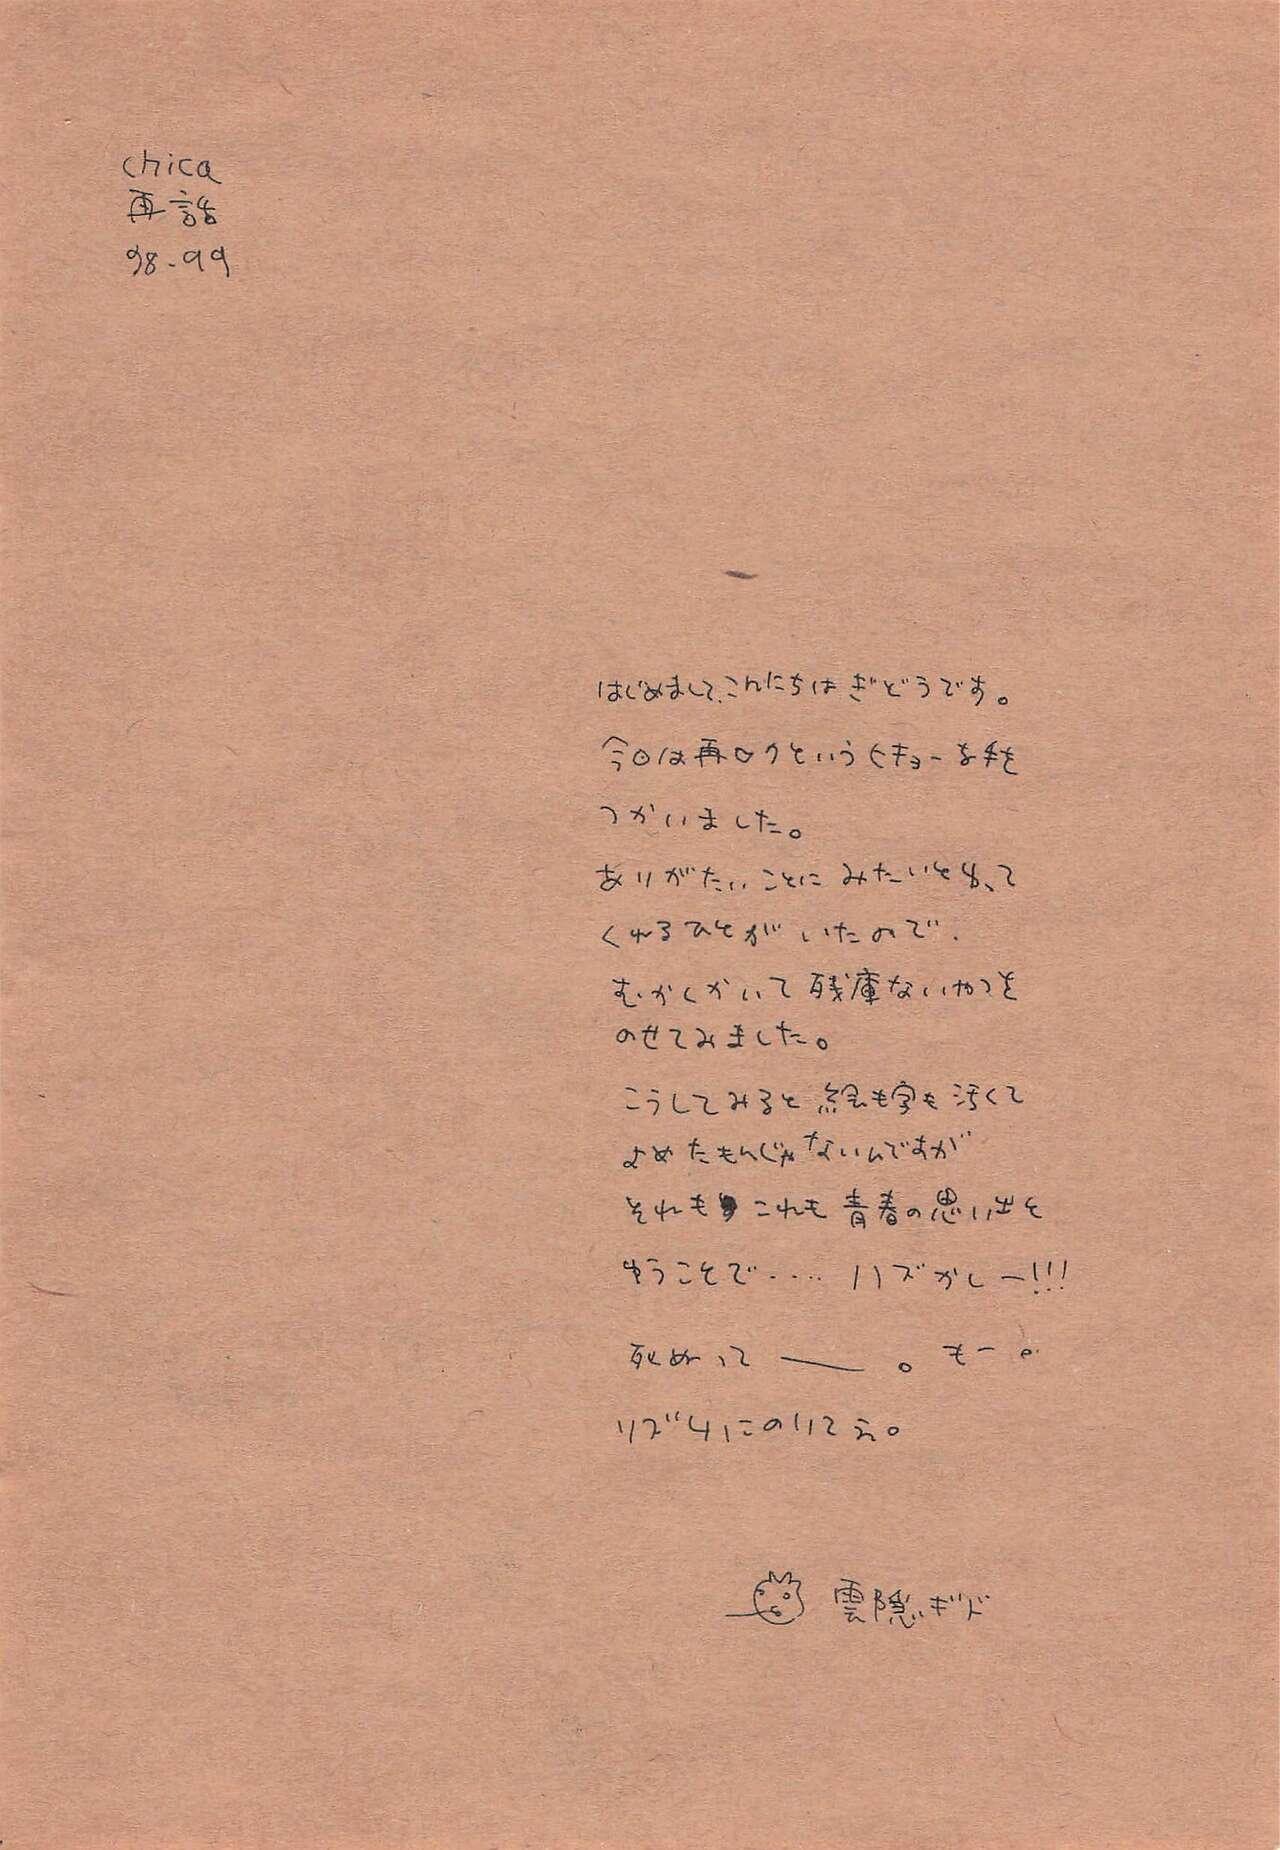 chica
再話
98-99
はじめまして、こんにちは ぎどうです。
今回は再ロクというヒキョーな手を
つかいました。
ありがたいことに みたいと
くれるひとが いたので、
むかしかいて 残庫ないやつを
のせてみました。
こうしてみると 絵も字も 汚くて
よめたもんじゃないんですが
それも これも 青春の思い出と
ゆうことで‥‥ ハズかしー!!!
死ぬって ー。もー。
リズムにのりてえ。
雲隠ギド